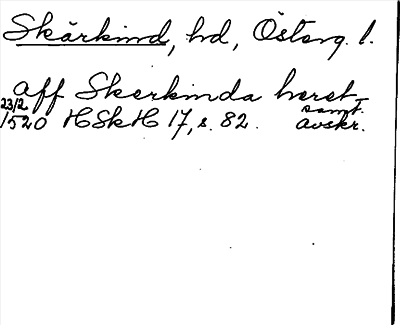 Skärkind, hd, Österg. l.
aff Skerkinda heret
23/2
1520 HSkH 17, s. 82. samt. avskr.